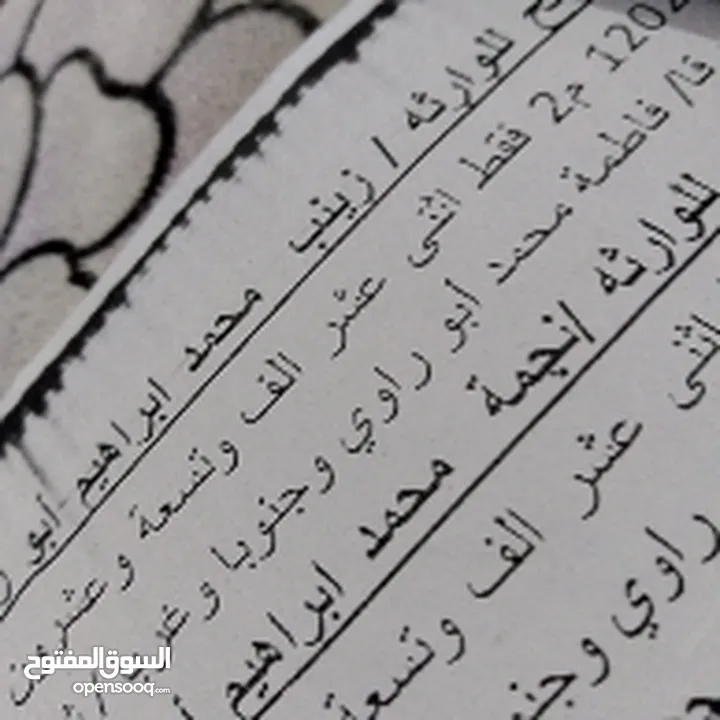 للوارثه / زينب محمد ابراهيم أبو
م2 فقط اثنى عشر الف وتسعة وعشرون
فاطمة محمد أبو راوي وجنوبا وغربا
للوارثه /نجمة محمد ابراهيم
اثنى عشر الف وتسعة
راوي
السوق المفتوح
opensooq.com